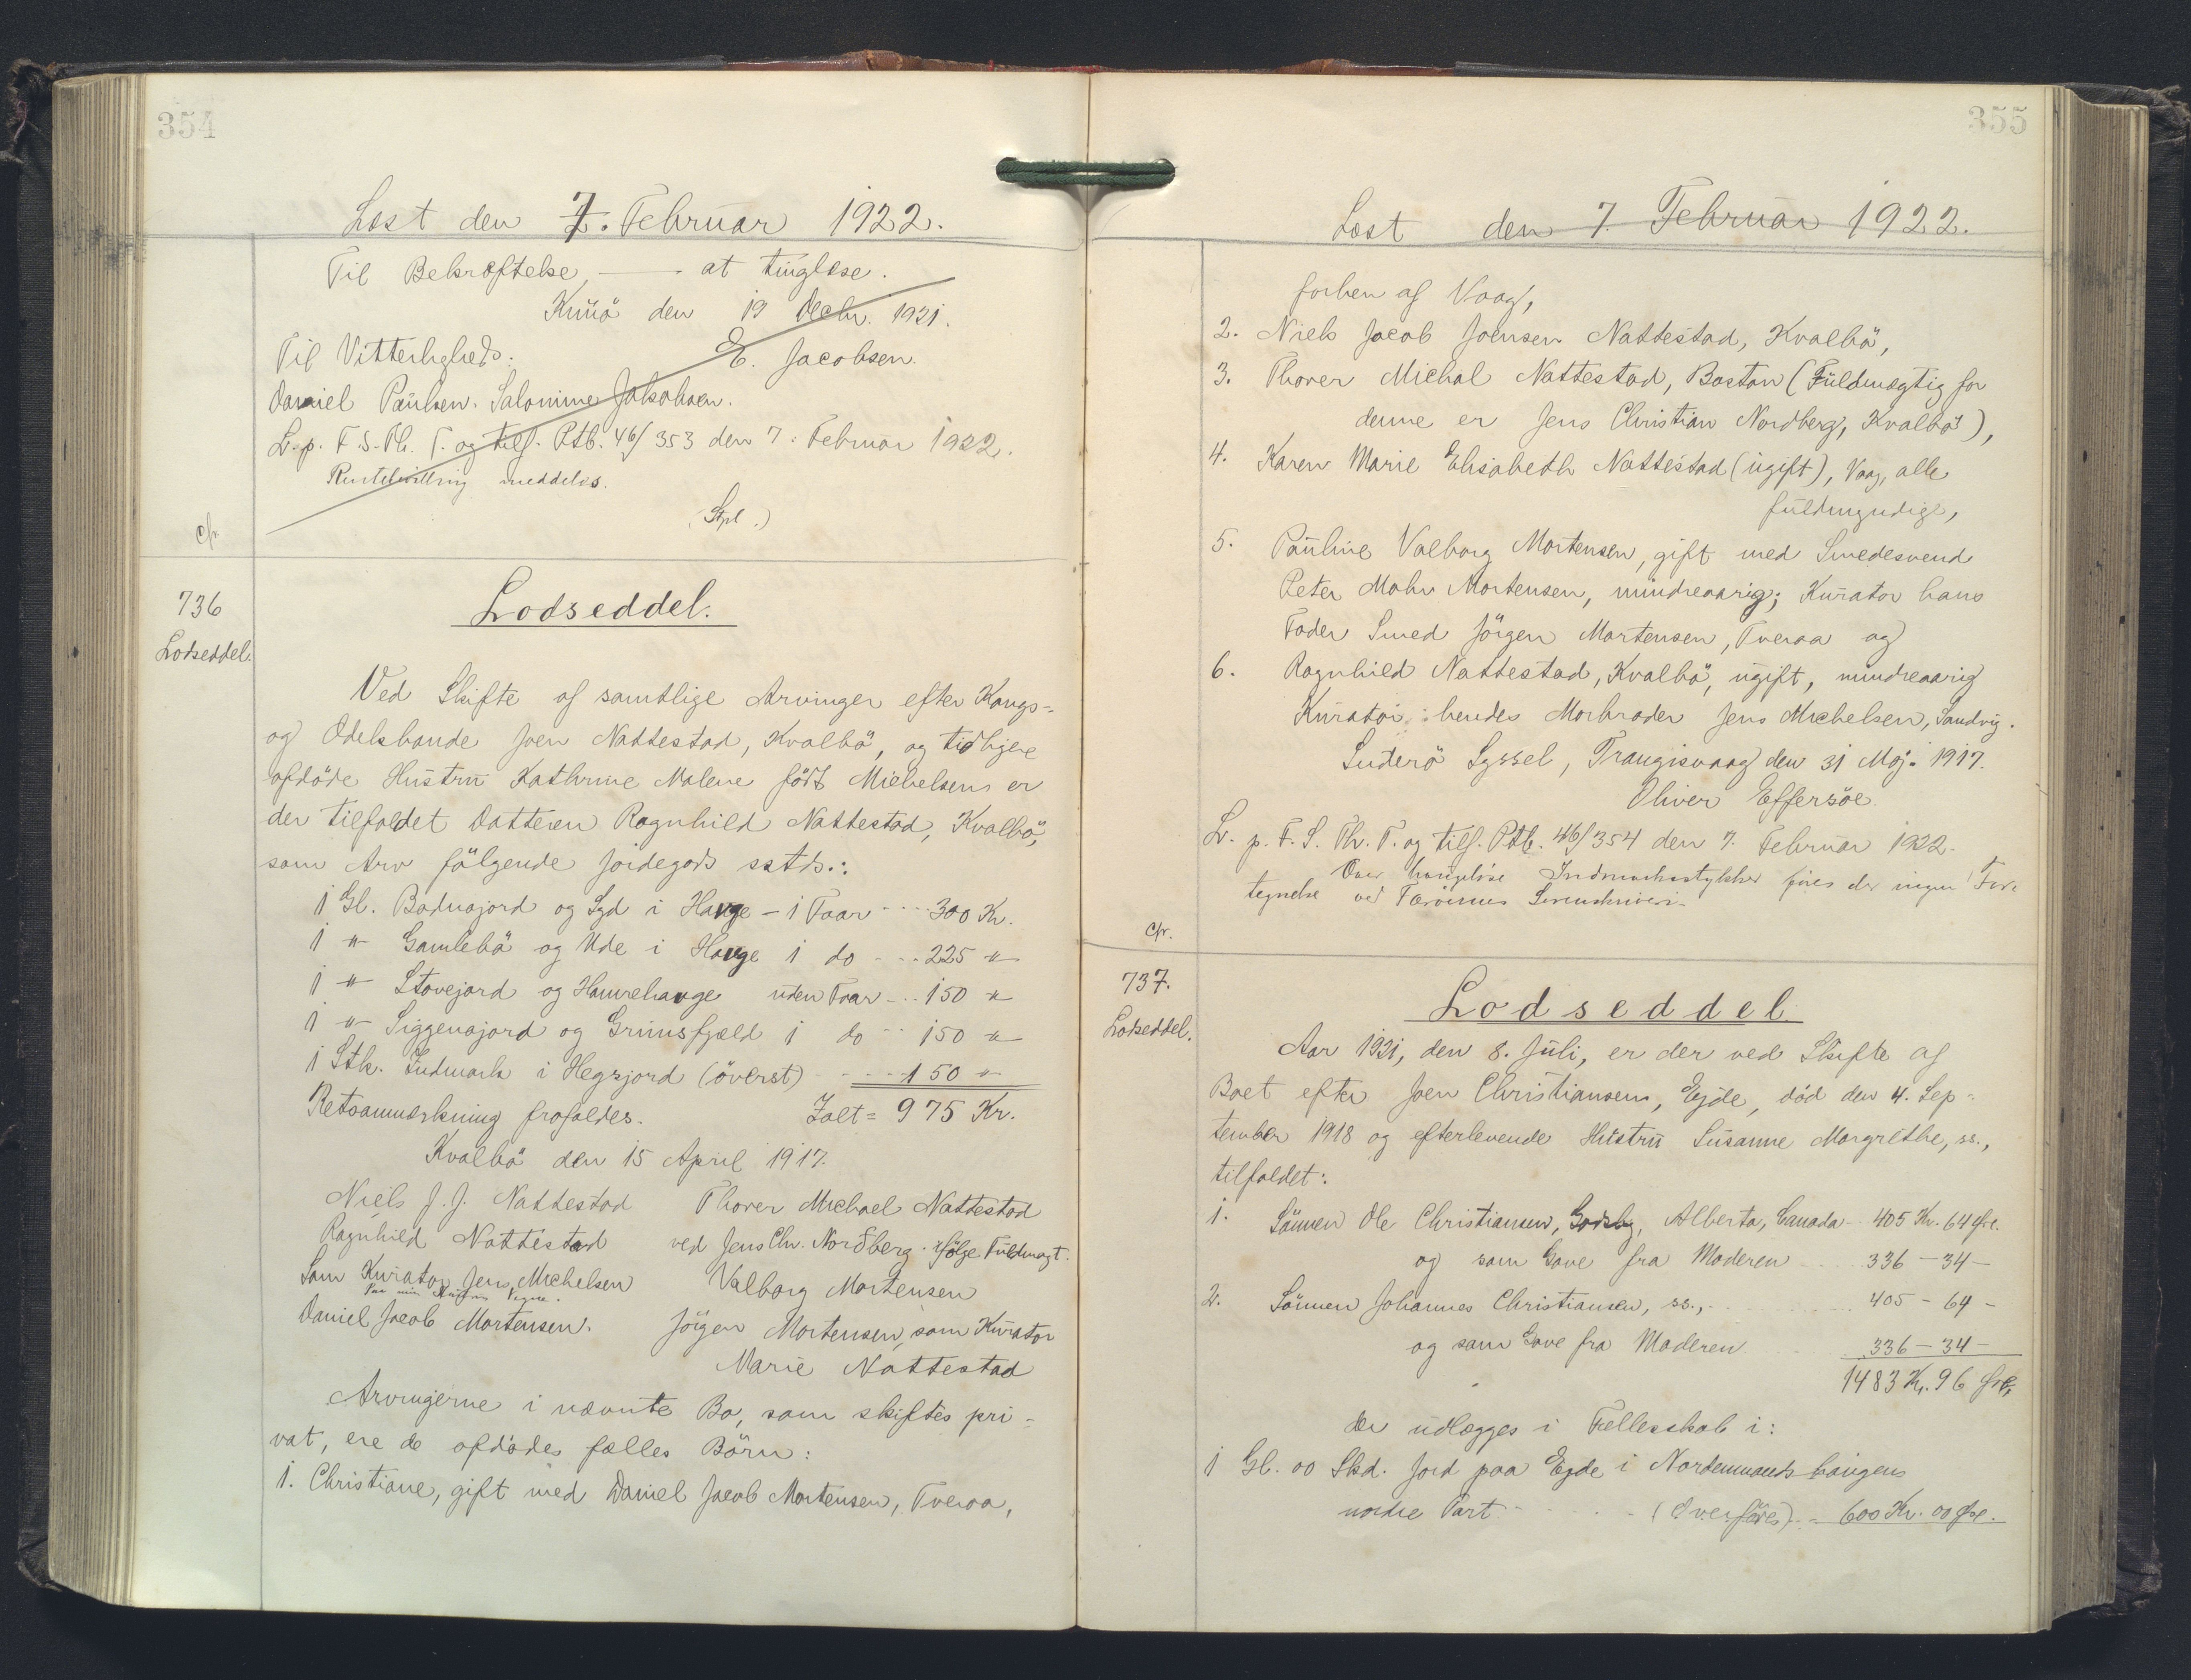 354
Læst den 7. Februar 1922.
Til Bekræftelse — at tinglæse.
Kunö den 19 Decbr. 1921.
Til Vitterlighed: E. Jacobsen.
Daniel Paulsen. Salomine Jakobsen.
L. p. F. S. Th. T. og tilf. Ptb. 46/353 den 7. Februar 1922.
meddeles.
(Stpl.)
Cfr.
736
Lodseddel.
Lodseddel.
Ved Skifte af samtlige Arvinger efter Kongs-
og Odelsbonde Joen Nattestad, Kvalbö, og tidligere
afdöde Hustru Kathrine Malene födt Michelsen er
der tilfaldet Datteren Ragnhild Nattestad, Kvalbö,
som Arv fölgende Jordegods sstds.:
1 Gl. Bodnajord og Syd i Hauge - 1 Faar .... 300 Kr.
1 " Gamlebö og Ude i Hauge 1 do ... 225 "
1 " Stovejord og Hamrehauge uden Faar ... 150 "
1 " Siggenajord og Grimsfjæld 1 do .. 150 "
1 Stk. Indmark i Hegsjord (överst) .... 150 "
Retsanmærkning frafaldes. Ialt = 975 Kr.
Kvalbö den 15 April 1917.
Niels J. J. Nattestad Thorer Michael Nattestad
Ragnhild Nattestad ved Jens Chr. Nordberg ifölge Fuldmagt.
Som Kurator Jens Michelsen Valborg Mortensen
Paa min Hustrus Vegne.
Daniel Jacob Mortensen. Jörgen Mortensen, som Kurator
Marie Nattestad
Arvingerne i nævnte Bo, som skiftes pri-
vat, ere de afdödes fælles Börn:
1. Christiane, gift med Daniel Jacob Mortensen, Tveraa,
355
Læst den 7. Februar 1922.
forhen af Vaag,
2. Niels Jacob Joensen Nattestad, Kvalbö,
3. Thorer Michal Nattestad, Boston (Fuldmægtig for
denne er Jens Christian Nordberg, Kvalbö),
4. Karen Marie Elisabeth Nattestad (ugift), Vaag, alle
fuldmyndige,
5. Pauline Valborg Mortensen, gift med Smedesvend
Peter Mohr Mortensen, mindreaarig; Kurator hans
Fader Smed Jörgen Mortensen, Tveraa og
6. Ragnhild Nattestad, Kvalbö, ugift, mindreaarig
Kurator: hendes Morbroder Jens Michelsen, Sandvig.
Suderö Syssel, Trangisvaag den 31 Maj 1917.
Oliver Effersöe.
L. p. F. S. Th. T. og tilf. Ptb. 46/354 den 7. Februar 1922.
Over haugelöse Indmarksstykker föres der ingen For-
tegnelse ved Færöernes Sorenskriveri.
Cfr.
737.
Lodseddel.
Lodseddel.
Aar 1921, den 8. Juli, er der ved Skifte af
Boet efter Joen Christiansen, Ejde, död den 4. Sep-
tember 1918 og efterlevende Hustru Susanne Margrethe, ss.,
tilfaldet:
1. Sönnen Ole Christiansen, Alberta, Canada .. 405 Kr. 64 Öre.
og som Gave fra Moderen .... 336 - 34 -
2. Sönnen Johannes Christiansen, ss., ........ 405 - 64 -
og som Gave fra Moderen .... 336 - 34 -
1483 Kr. 96 Öre,
der udlægges i Fællesskab i:
1 Gl. 00 Skd. Jord paa Ejde i Nordenmands haugens
nordre Part .... (Overföres) .. 600 Kr. 00 Öre.